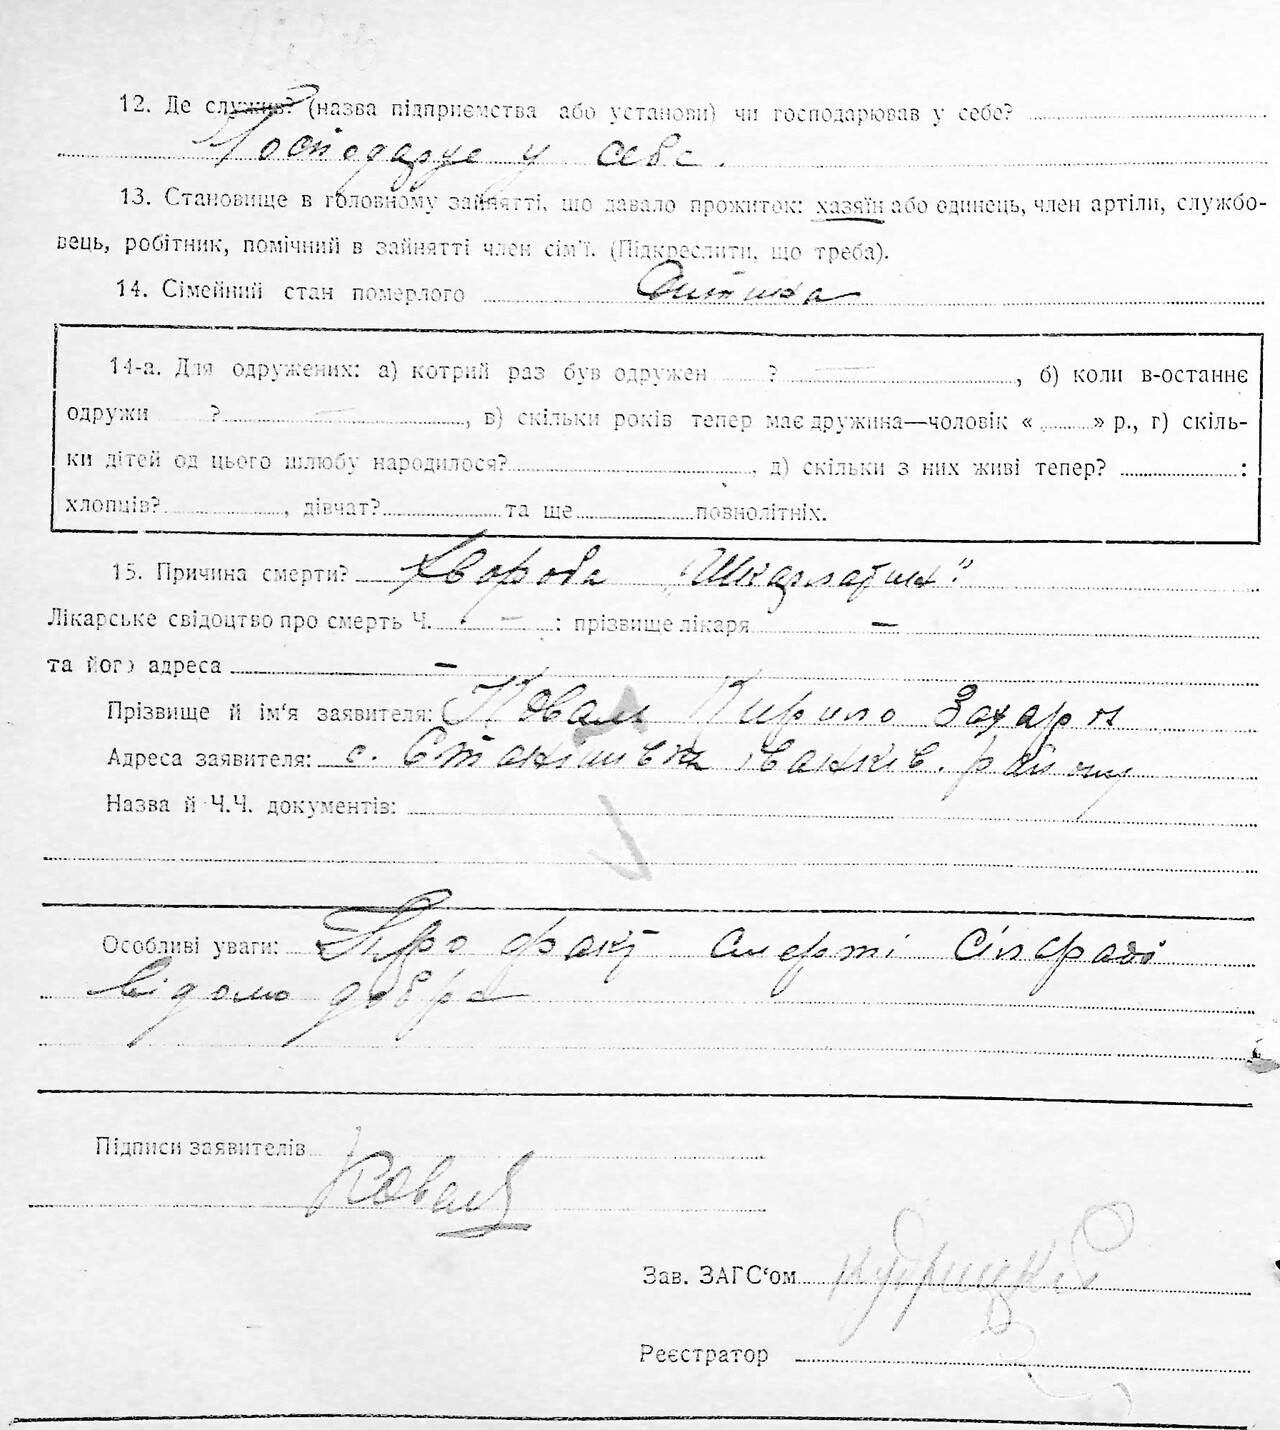 12. Де служив? (назва підприємства або установи) чи господарював у себе?
Господарує у себе.
13. Становище в головному зайнятті, що давало прожиток: хазяїн або одинець, член артіли, службо-
вець, робітник, помічний в зайнятті член сім'ї. (Підкреслити, що треба).
14. Сімейний стан померлого Дитина
14-а. Для одружених: а) котрий раз був одружен ? —, б) коли в-останнє
одружи ? —, в) скільки років тепер має дружина—чоловік « » р., г) скіль-
ки дітей од цього шлюбу народилося? , д) скільки з них живі тепер? :
хлопців? , дівчат? та ще повнолітніх.
15. Причина смерти? Хвороба „Шкарлатин".
Лікарське свідоцтво про смерть Ч. — : прізвище лікаря —
та його адреса —
Прізвище й ім'я заявителя: Коваль Кирило Захаров
Адреса заявителя: с. Іванків. району
Назва й Ч.Ч. документів:
Особливі уваги: Про факт смерті сільраді
відомо добре
Підписи заявителів
Коваль
Зав. ЗАГС'ом Кудрицкий
Реєстратор